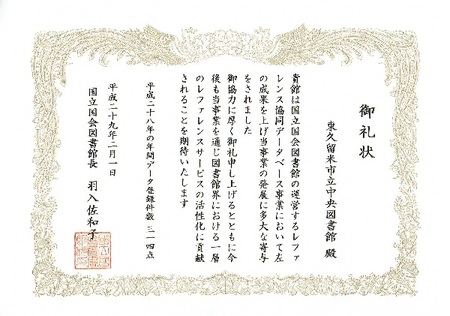 御礼状
東久留米市立中央図書館 殿
貴館は国立国会図書館の運営するレファ
レンス協同データベース事業において左
の成果を上げ当事業の発展に多大な寄与
をされました
御協力に厚く御礼申し上げるとともに今
後も当事業を通じ図書館界における一層
のレファレンスサービスの活性化に貢献
されることを期待いたします
平成二十八年の年間データ登録件数 三一四点
平成二十九年二月一日
国立国会図書館長 羽入佐和子